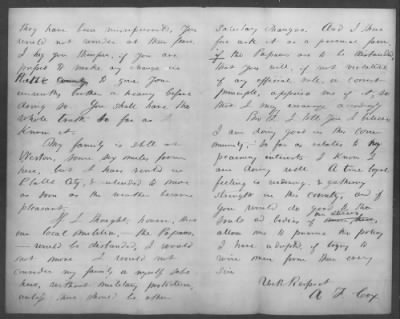 they have been misrepresented, you
would not wonder at their fears.
I beg you therefore, if you are
to make any change in
Platte County to give your
a hearing before
doing so. You shall have the
whole truth so far as I
know it.
My family is still at
Weston, some six miles from
here, but I have rented in
Platte City, & intended to move
as soon as the weather became
pleasant.
If I thought, however, that
our local militia — the Papaws,
— would be disbanded, I would
not move. I would not
consider my family or myself safe
here, without military protection,
unless there should be other
Saturday changes. And I shall
ask it as a personal favor
if the Papaws are to be disbanded,
that you will, if not violative
of any official rule, or correct
principle, apprise me of it, so
that I may arrange accordingly.
But I tell you I believe
I am doing good in this com
munity. So far as relates to my
pecuniary interests I know I
am doing well. A true loyal
feeling is reviving, & gathering
strength in this county, and if
you would do good to the
souls and bodies of
allow me to pursue the policy
I have adopted, of trying to
win men from their every
sin
With Respect
A. F. Cox